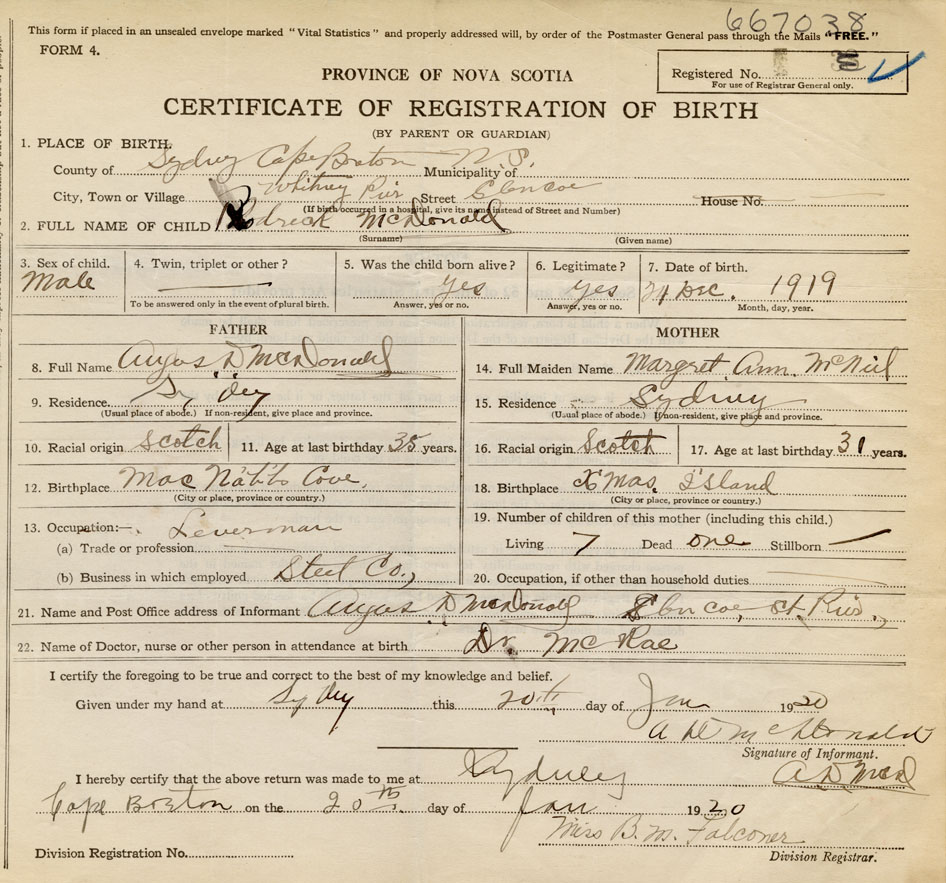 667038
This form if placed in an unsealed envelope marked "Vital Statistics" and properly addressed will, by order of the Postmaster General pass through the Mails "FREE."
FORM 4.
PROVINCE OF NOVA SCOTIA
Registered No.
For use of Registrar General only.
CERTIFICATE OF REGISTRATION OF BIRTH
(BY PARENT OR GUARDIAN)
1. PLACE OF BIRTH.
County of Sydney Cape Breton Municipality of N.S.
City, Town or Village Whitney Pier Street Glencoe House No.
(If birth occurred in a hospital, give its name instead of Street and Number)
2. FULL NAME OF CHILD Rodrick McDonald
(Surname) (Given name)
3. Sex of child. 4. Twin, triplet or other? 5. Was the child born alive? 6. Legitimate? 7. Date of birth.
Male yes yes Dec. 1919
To be answered only in the event of plural birth. Answer, yes or no. Answer, yes or no. Month, day, year.
FATHER
8. Full Name Angus D McDonald
9. Residence. Sydney
(Usual place of abode.) If non-resident, give place and province.
10. Racial origin Scotch 11. Age at last birthday 35 years.
12. Birthplace Mac Cove,
(City or place, province or country.)
13. Occupation:— Leverman
(a) Trade or profession
(b) Business in which employed Steel Co.,
MOTHER
14. Full Maiden Name Margret Ann. McNiel
15. Residence Sydney
(Usual place of abode.) If non-resident, give place and province.
16. Racial origin Scotch 17. Age at last birthday 31 years.
18. Birthplace X'Mas Island
(City or place, province or country.)
19. Number of children of this mother (including this child.)
Living 7 Dead one Stillborn —
20. Occupation, if other than household duties
21. Name and Post Office address of Informant Angus D McDonald Glencoe, St. Pier,
22. Name of Doctor, nurse or other person in attendance at birth Dr. McRae
I certify the foregoing to be true and correct to the best of my knowledge and belief.
Given under my hand at Sydney this 20th day of Jan 1920
A D McDonald
Signature of Informant.
I hereby certify that the above return was made to me at Sydney
Cape Breton on the 20th day of Jan 1920
Miss B. M. Falconer
Division Registrar.
Division Registration No.